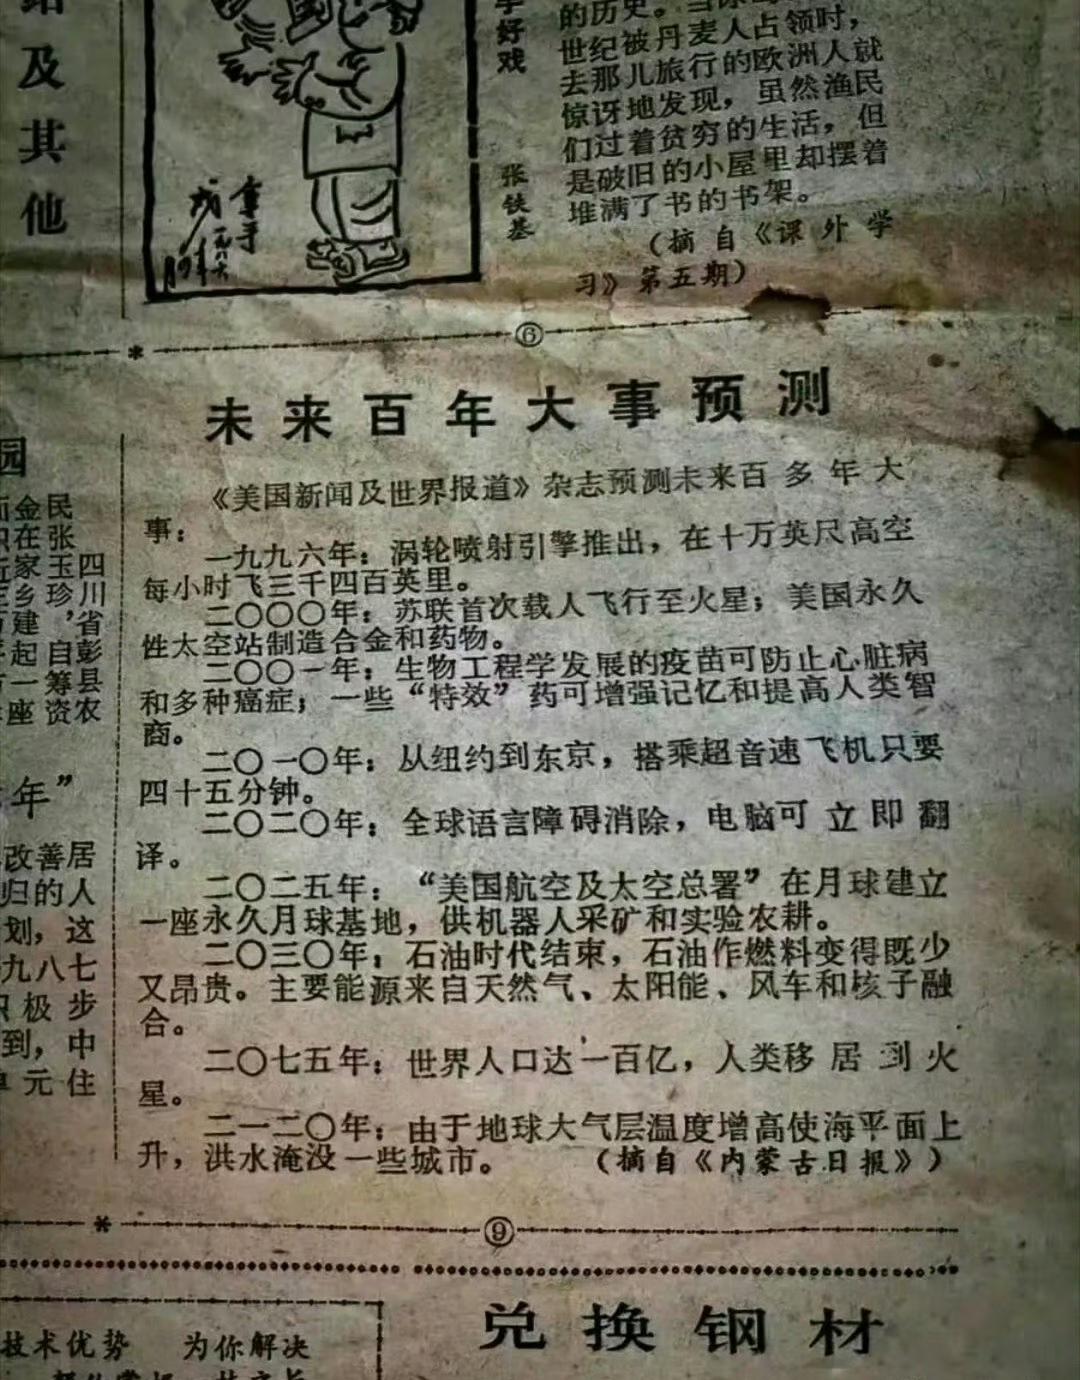 及
其
他
好
戏
张
铁
基
的历史。
世纪被丹麦人占领时，
去那儿旅行的欧洲人就
惊讶地发现，虽然渔民
们过着贫穷的生活，但
是破旧的小屋里却摆着
堆满了书的书架。
（摘自《课外学
习》第五期）
⑥
未来百年大事预测
《美国新闻及世界报道》杂志预测未来百多年大
事：
一九九六年：涡轮喷射引擎推出，在十万英尺高空
每小时飞三千四百英里。
二〇〇〇年：苏联首次载人飞行至火星；美国永久
性太空站制造合金和药物。
二〇〇一年：生物工程学发展的疫苗可防止心脏病
和多种癌症；一些“特效”药可增强记忆和提高人类智
商。
二〇一〇年：从纽约到东京，搭乘超音速飞机只要
四十五分钟。
二〇二〇年：全球语言障碍消除，电脑可立即翻
译。
二〇二五年：“美国航空及太空总署”在月球建立
一座永久月球基地，供机器人采矿和实验农耕。
二〇三〇年：石油时代结束，石油作燃料变得既少
又昂贵。主要能源来自天然气、太阳能、风车和核子融
合。
二〇七五年：世界人口达一百亿，人类移居到火
星。
二一二〇年：由于地球大气层温度增高使海平面上
升，洪水淹没一些城市。　（摘自《内蒙古日报》）
⑨
园
金民
在张
家玉四
乡珍川
建，省
起自彭
一筹县
座资农
年”
改善居
归的人
划，这
九八七
极步
到，中
元住
兑换钢材
技术优势　为你解决